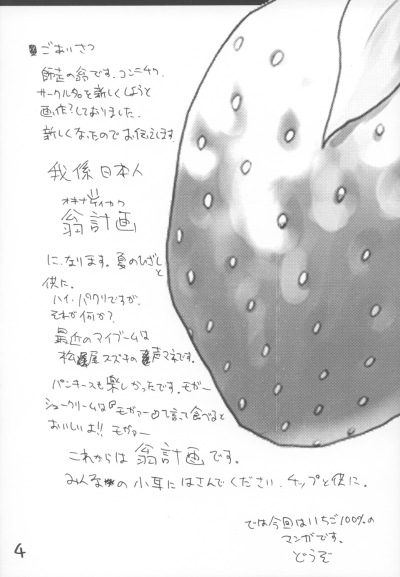 ごあいさつ
師走の翁です。コンニチワ。
サークル名を新しくしようと
画作?しておりました。
新しくなったのでお伝えします
我係日本人
オキナケイカク
翁計画
に、なります。夏のひざしと
供に。
ハイ、パクリですが、
それが何か?
最近のマイブームは
松屋スズキの声マネです。
パンチースも楽しかったです。モガー
シュークリームは『モガァー』と言って食べると
おいしいよ!!モガァー
これからは翁計画です。
みんなの小耳にはさんでください。チップと供に。
では今回はいちご100%の
マンガです。
どうぞ
4